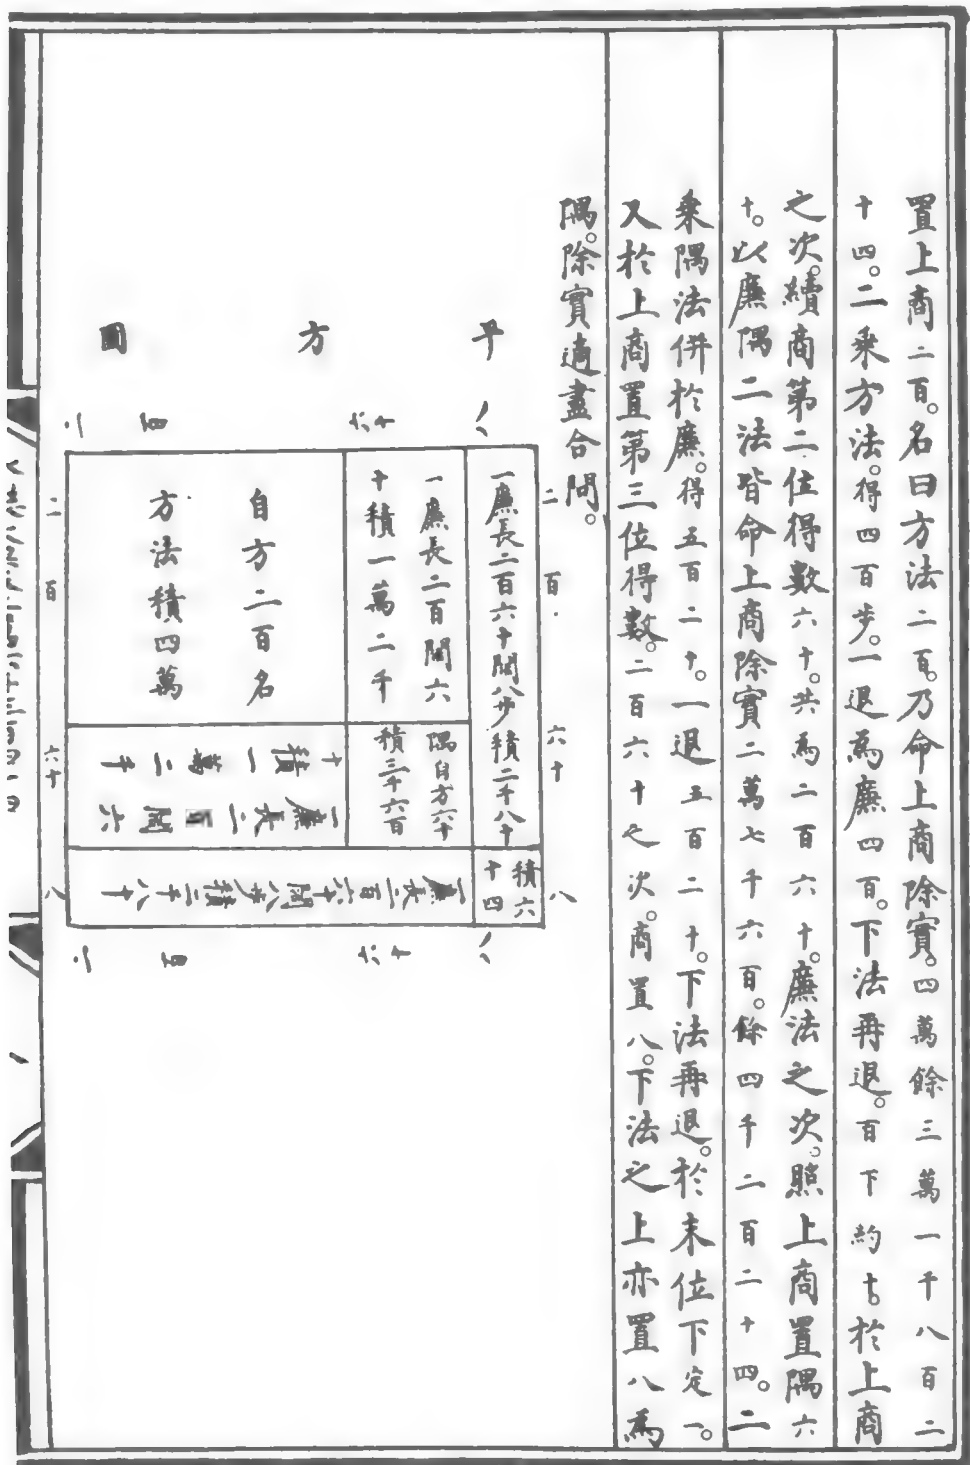 置上商二百。名曰方法二百。乃命上商除實。四萬餘三萬一千八百二
十四。二乘方法。得四百步。一退為廉四百。下法再退。百下約十。於上商
之次。續商第二位得數六十。共為二百六十。廉法之次。照上商置隅六
十。以廉隅二法皆命上商除實二萬七千六百。餘四千二百二十四。二
乘隅法併於廉。得五百二十。一退五百二十。下法再退。於末位下定一。
又於上商置第三位得數。二百六十之次。商置八。下法之上亦置八為
隅。除實適盡合問。
平方圖
二百
六十
八
一廉長二百六十闊八步積二千八十
一廉長二百闊六
十積一萬二千
自方二百名
方法積四萬
隅自方六十
積三千六百
一廉長二百闊六
十積一萬二千
積六
十四
一廉長二百六十闊八步積二千八十
二百
六十
八
二百
六十
八
二百
六十
八